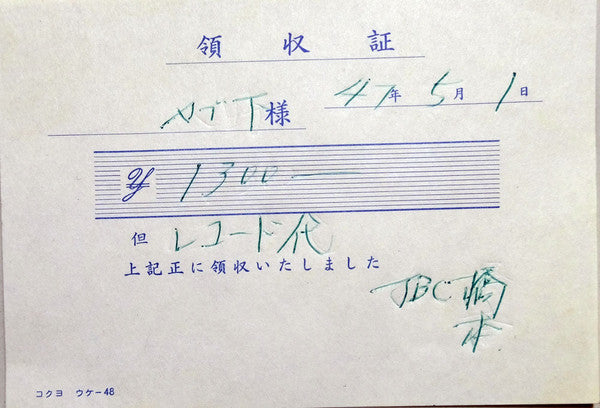 領収証
ヤブ下様
47年5月1日
¥1300—
但 レコード代
上記正に領収いたしました
JBC橋
本
コクヨ ウケ-48